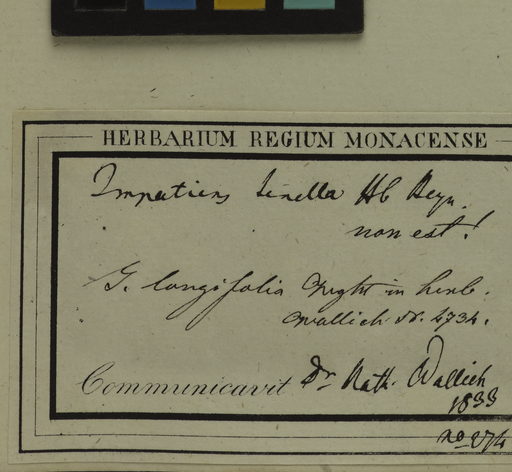 HERBARIUM REGIUM MONACENSE
Impatiens tenella Hb Heyn.
non est!
I. longifolia Wight in herb.
Wallich N. 4734.
Communicavit Dr. Nath. Wallich
1833
no 274